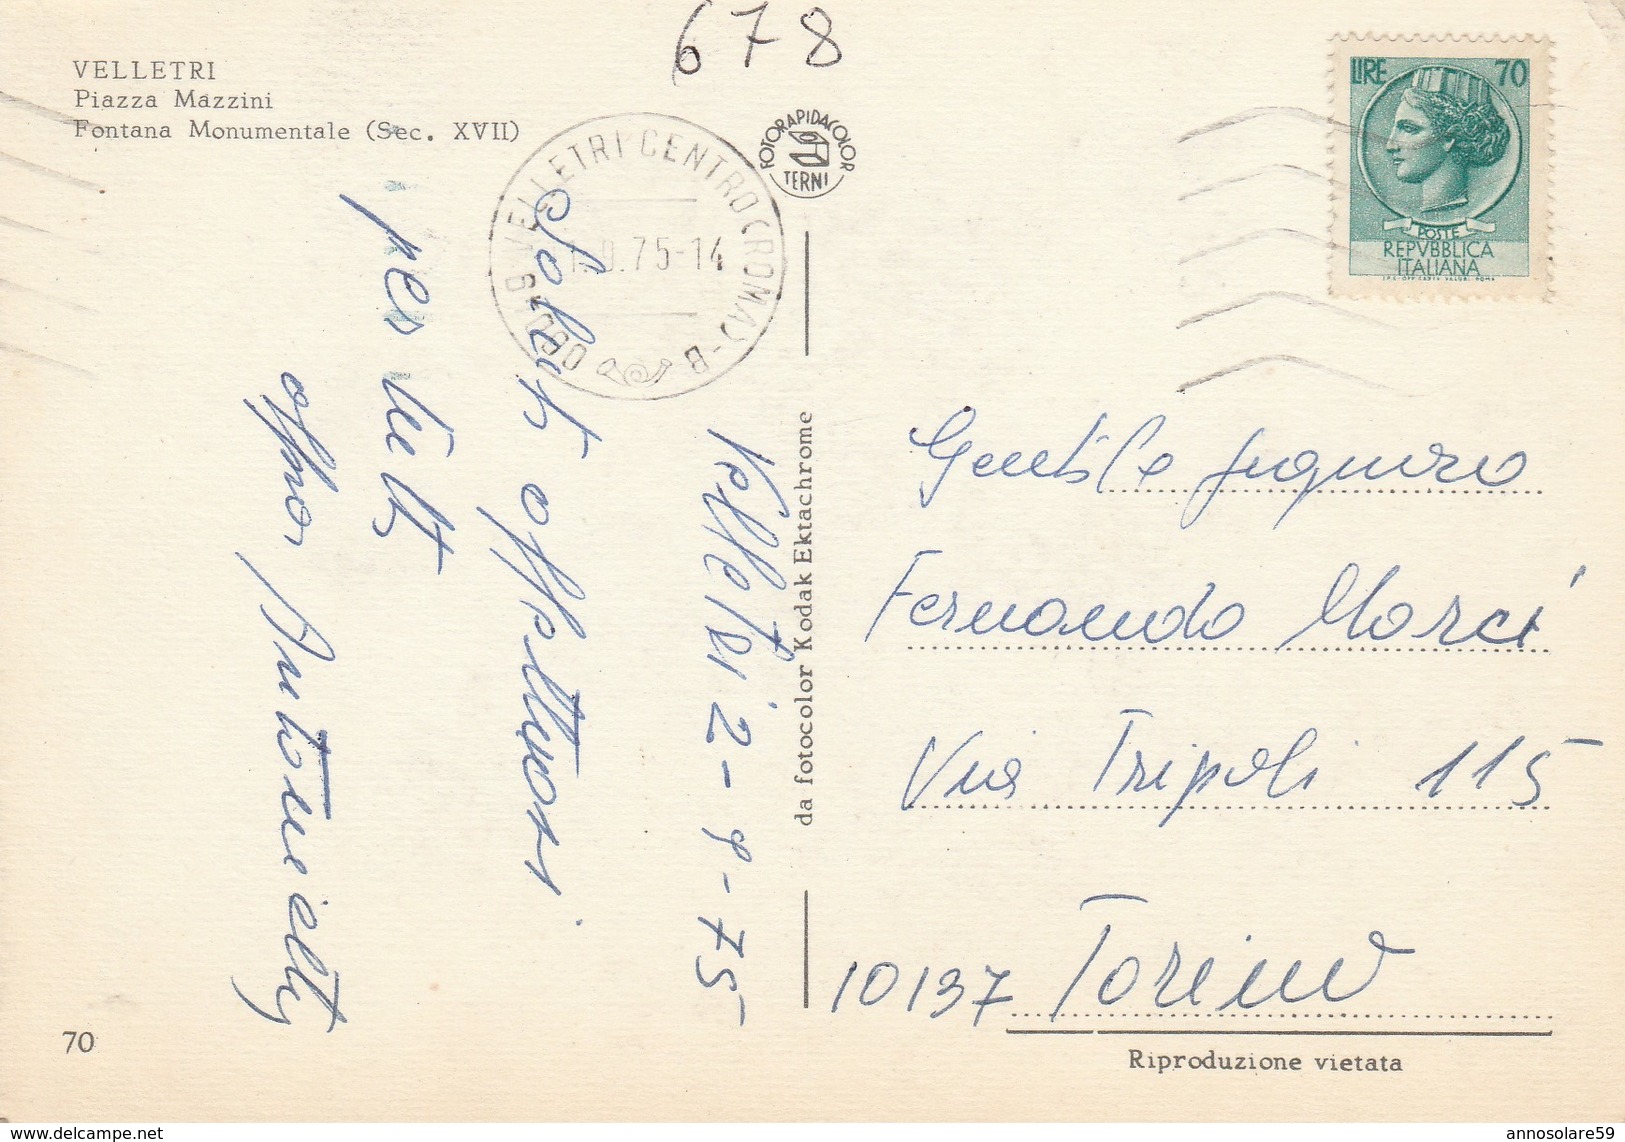 678
VELLETRI
Piazza Mazzini
Fontana Monumentale (Sec. XVII)
VELLETRI CENTRO (ROMA) - B
.75-14
FOTORAPIDACOLOR
TERNI
LIRE 70
POSTE
REPVBBLICA
ITALIANA
Velletri 2-9-75
Saluti affettuosi
per tutti
Antonietta
da fotocolor Kodak Ektachrome
Gentile
Fernando Marci
Via Tripoli 115
10137 Torino
70
Riproduzione vietata
www.delcampe.net
annosolare59